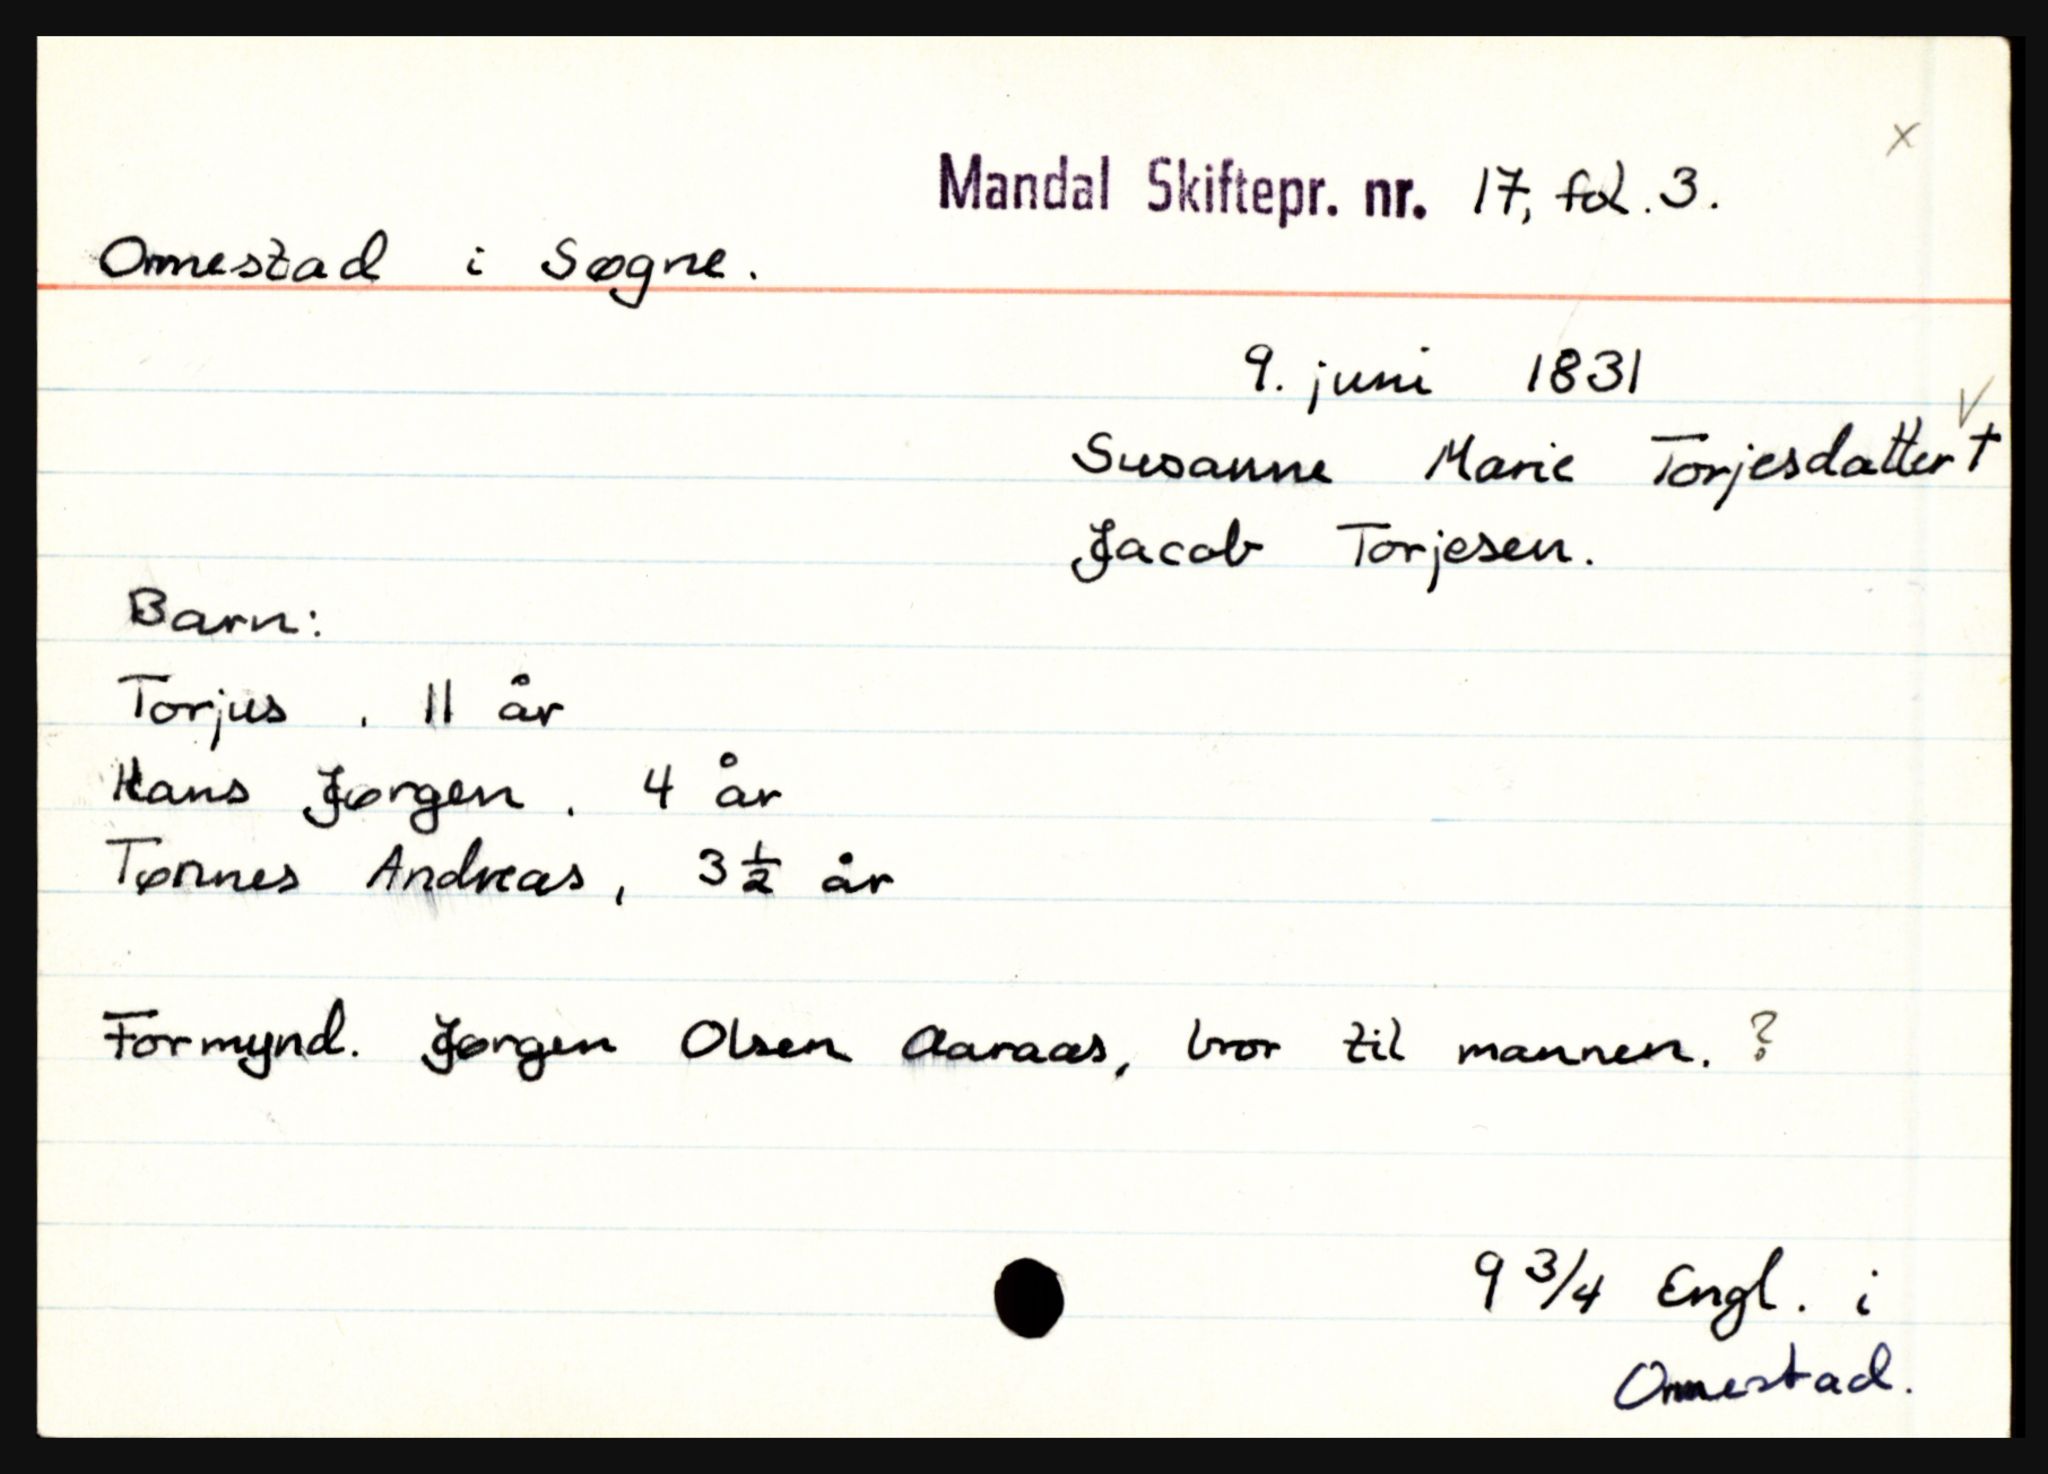 x
Mandal Skiftepr. nr. 17, fol. 3.
Omestad i Søgne.
9. juni 1831
V
Susanne Marie Torjesdatter †
Jacob Torjesen.
Barn:
Torjus, 11 år
Hans Jørgen. 4 år
Tønnes Andreas, 3 1/2 år
Formynd. Jørgen Olsen Aaraas, bror til mannen. ?
9 3/4 Engl. i
Omestad.